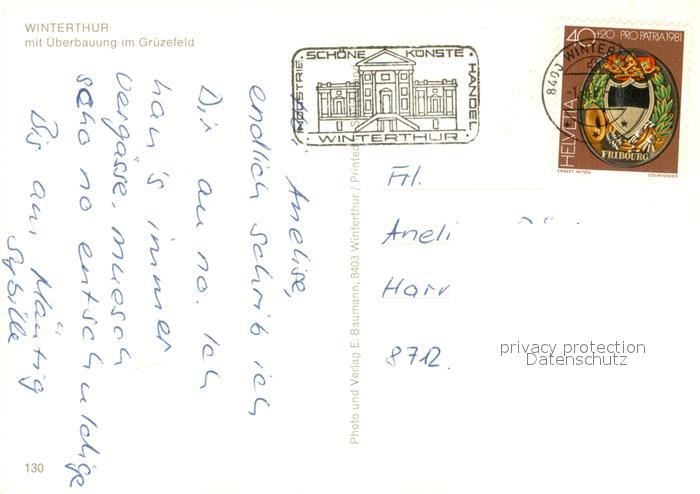 WINTERTHUR
mit Überbauung im Grüzefeld
INDUSTRIE · SCHÖNE KÜNSTE · HANDEL
WINTERTHUR
8401 WINTER
40+20 PRO PATRIA 1981
HELVETIA
FRIBOURG
ERNEST WITZIG
COURVOISIER
Anelise,
endlich schrib ich
Dir au no. Ich
han's immer
vergässe. muesch
scho no entschuldige
Bis am Mäntig
Sybille
Photo und Verlag E. Baumann, 8403 Winterthur / Printed
Frl.
Aneli
Harr
8712.
privacy protection
Datenschutz
130